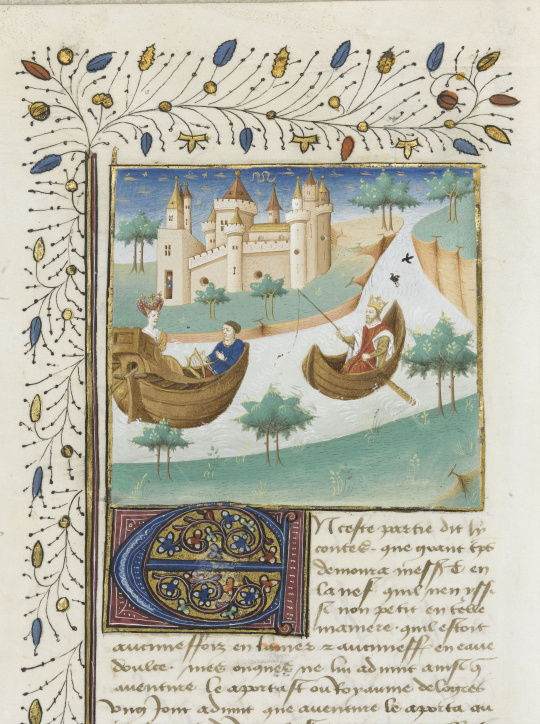 En ceste partie dit ly
contes que quant tpt
demoura messᵉ G en
la nef quil nen yssi
si non petit en telle
maniere quil estoit
aucuneffoiz en la mer z aucuneff en eaue
doulce mes onques ne lui aduint ainsi q
auenture le aportast ou Royaume delogres
Ung Jour aduint que auenture le aporta au